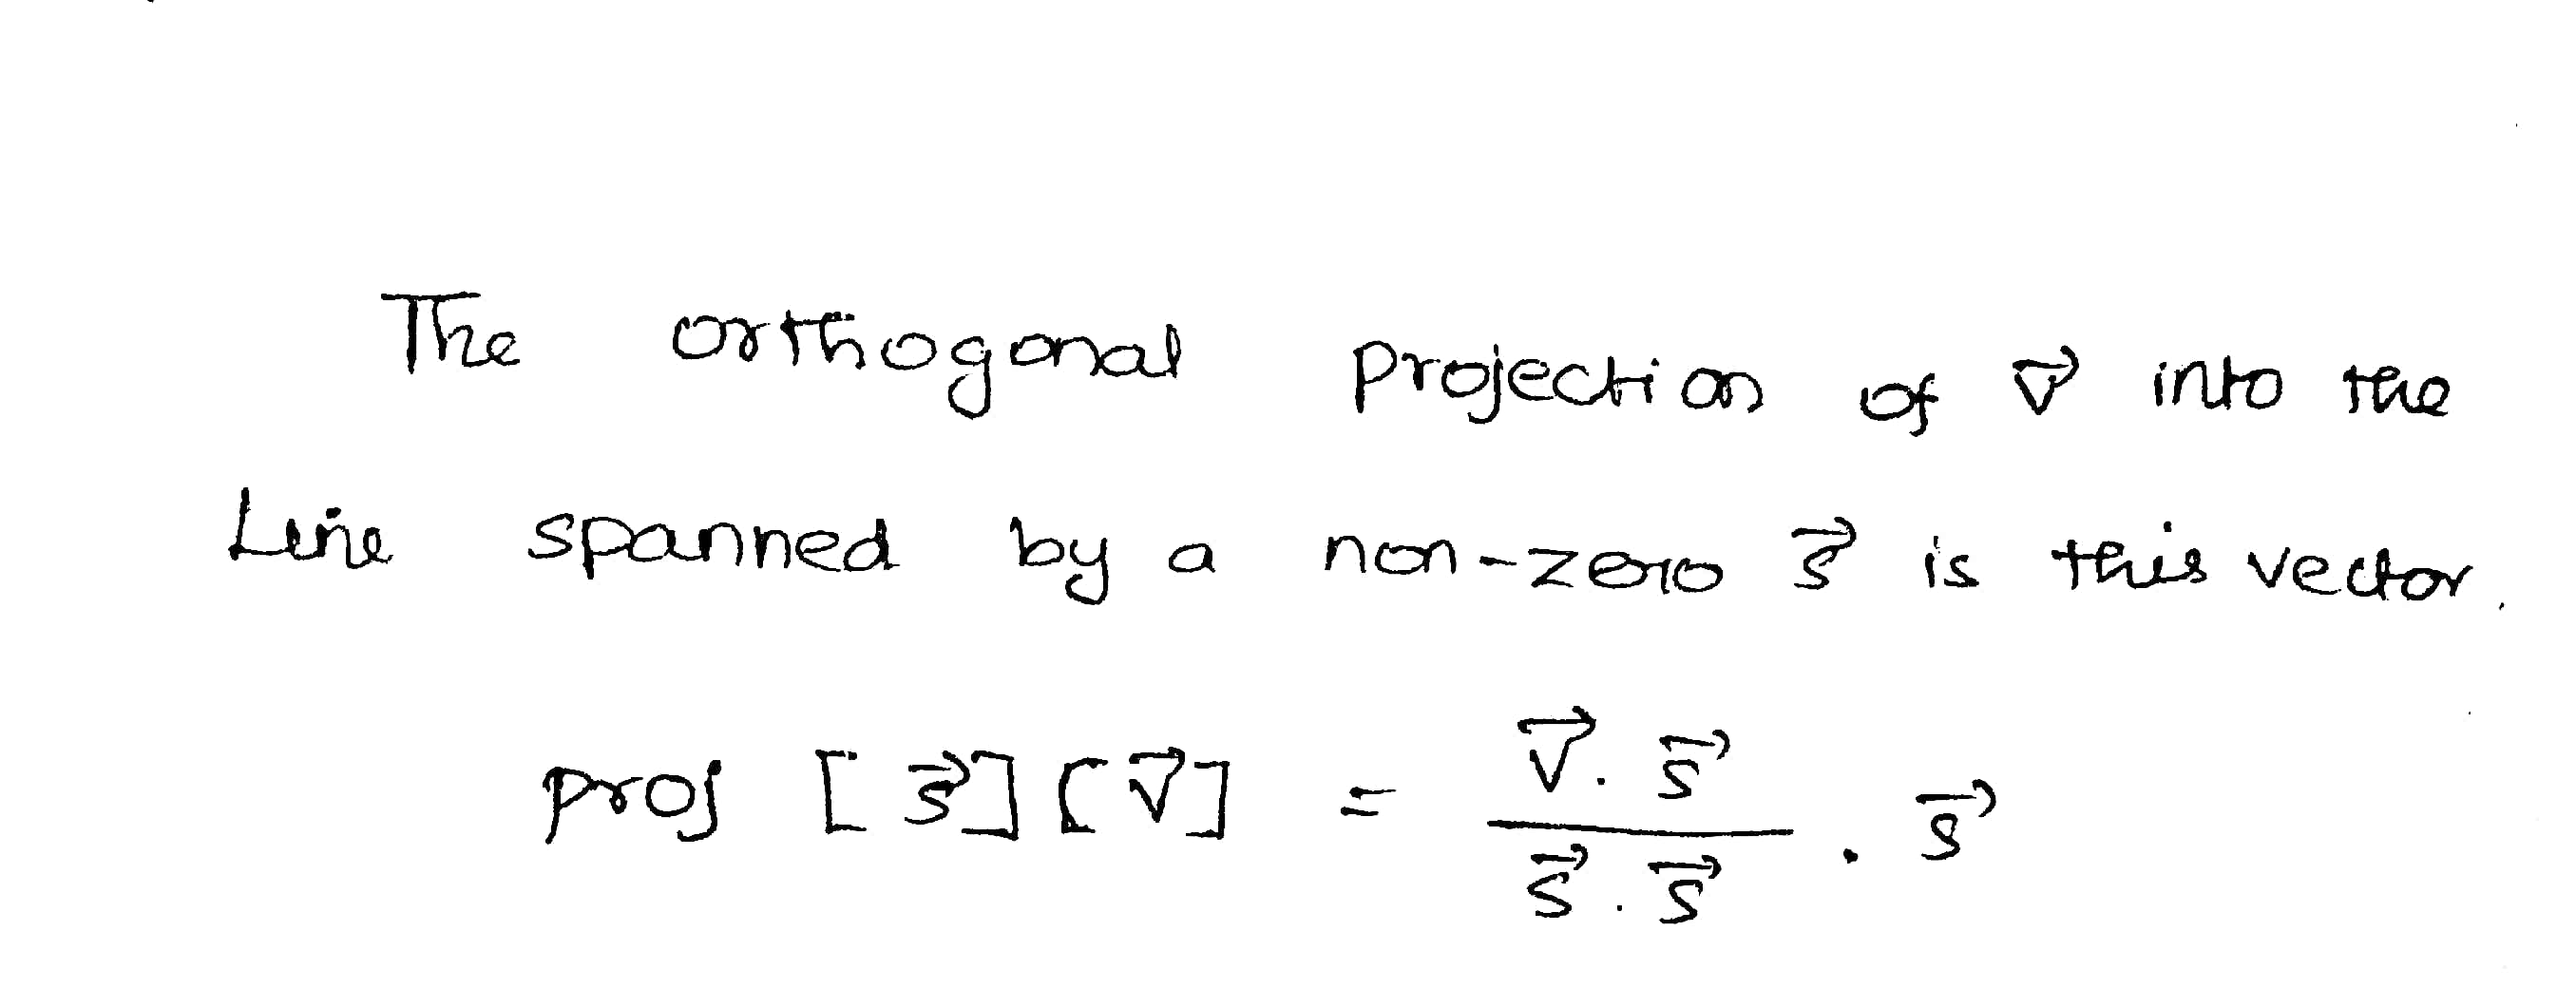 The orthogonal projection of $\vec{v}$ into the
Line spanned by a non-zero $\vec{s}$ is this vector.
proj $[\vec{s}][\vec{v}] = \frac{\vec{v} . \vec{s}}{\vec{s} . \vec{s}} . \vec{s}$